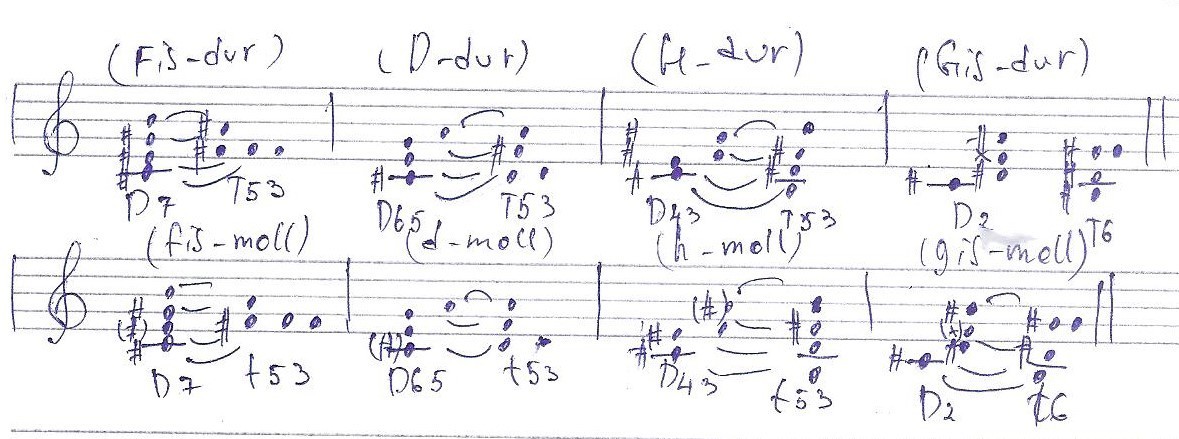 (Fis-dur) (D-dur) (H-dur) (Gis-dur)
D7 T53 D65 T53 D43 T53 D2 T6
(fis-moll) (d-moll) (h-moll) (gis-moll)
D7 t53 D65 t53 D43 t53 D2 t6